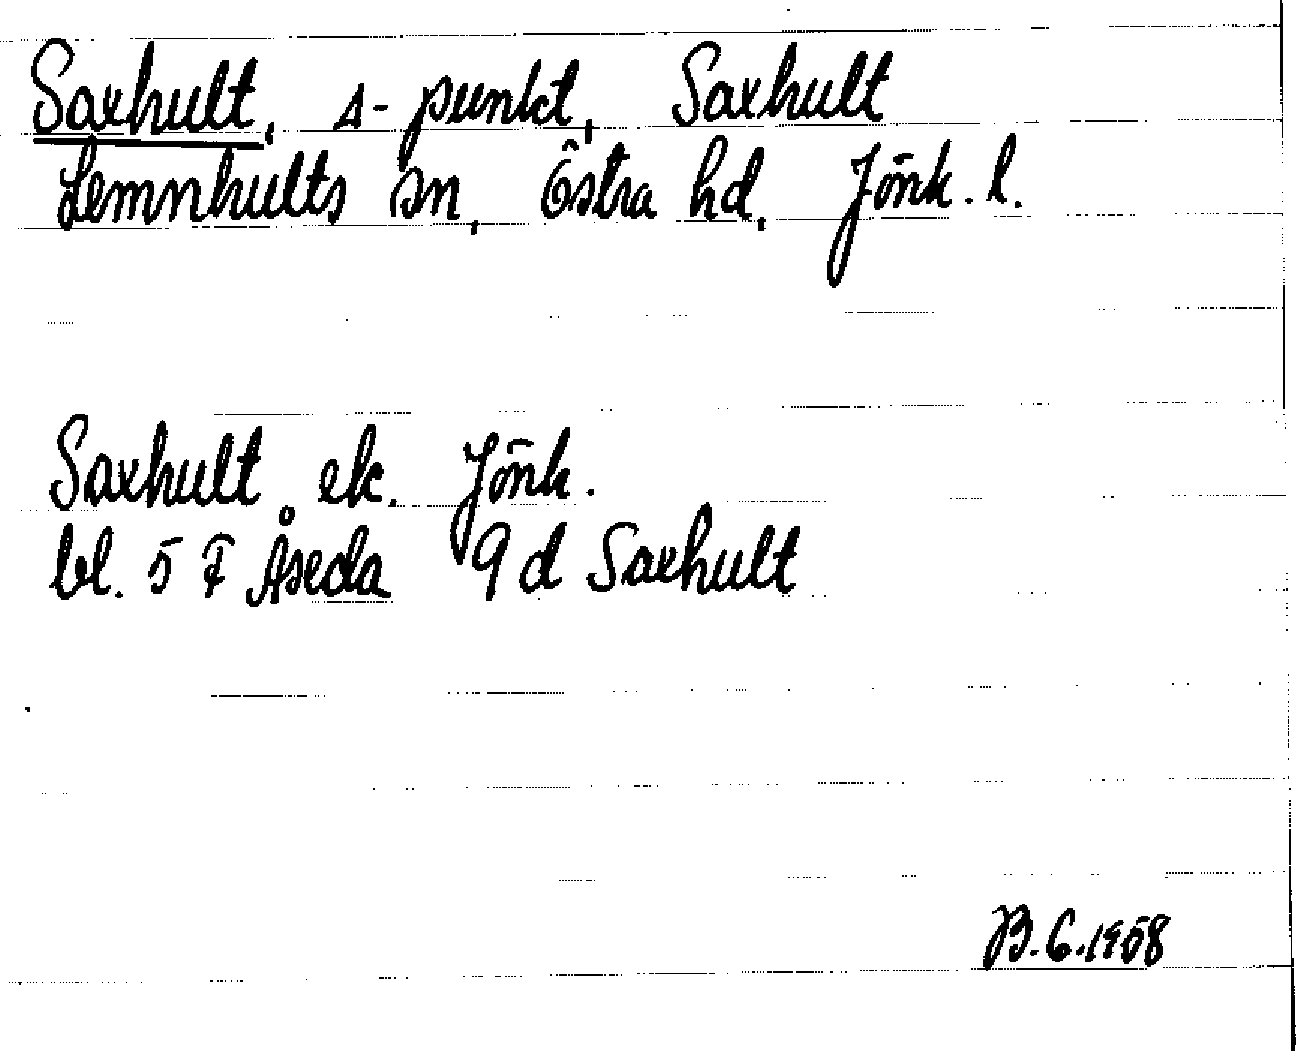 Saxhult, s-punkt, Saxhult
Lemnhults sn, Östra hd, Jönk. l.
Saxhult ek. Jönk.
bl. 5 F Åseda 9 d Saxhult
B.G.1958